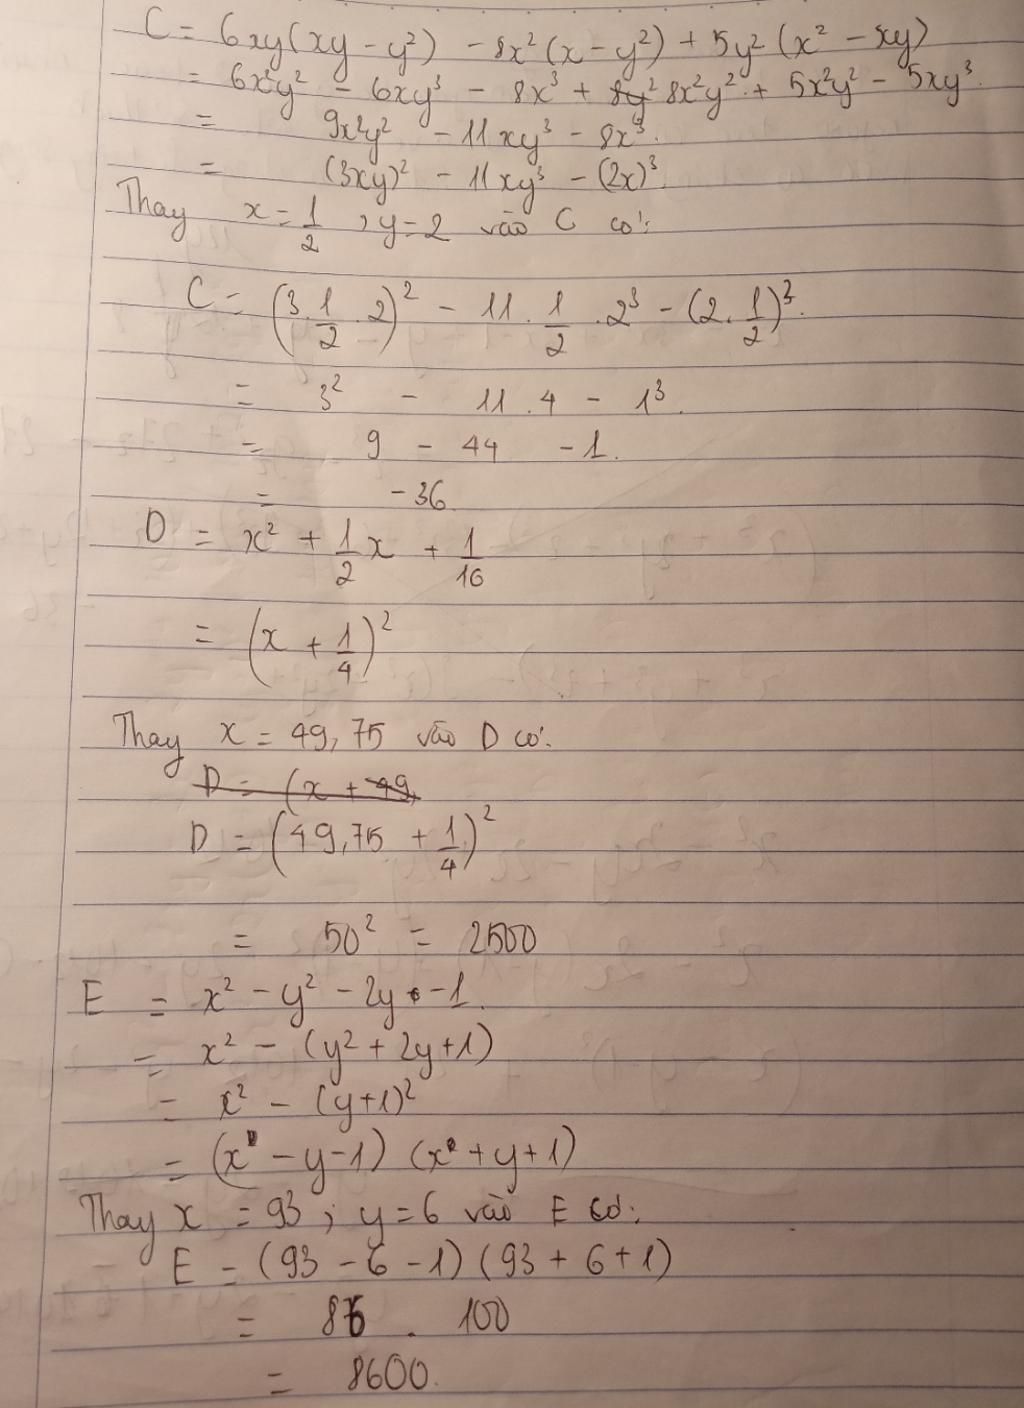 C = 6xy(xy - y²) - 8x²(x - y²) + 5y²(x² - xy)
= 6x²y² - 6xy³ - 8x³ + 8x²y² + 5x²y² - 5xy³.
= 9x²y² - 11xy³ - 8x³.
= (3xy)² - 11xy³ - (2x)³.
Thay x = 1/2, y = 2 vào C có:
C = (3.1/2.2)² - 11.1/2.2³ - (2.1/2)³.
= 3² - 11.4 - 1³.
= 9 - 44 - 1.
= -36.
D = x² + 1/2x + 1/16
= (x + 1/4)²
Thay x = 49,75 vào D có:
D = (x + 49,
D = (49,75 + 1/4)²
= 50² = 2500
E = x² - y² - 2y - 1.
= x² - (y² + 2y + 1)
= x² - (y+1)²
= (x - y - 1) (x + y + 1)
Thay x = 93 ; y = 6 vào E có:
E = (93 - 6 - 1) (93 + 6 + 1)
= 86 . 100
= 8600.